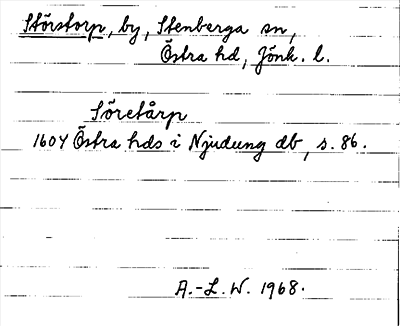 Störstorp, by, Stenberga sn,
Östra hd, Jönk. l.
Söretårp
1604 Östra hds i Njudung db, s. 86.
A.-L. W. 1968.